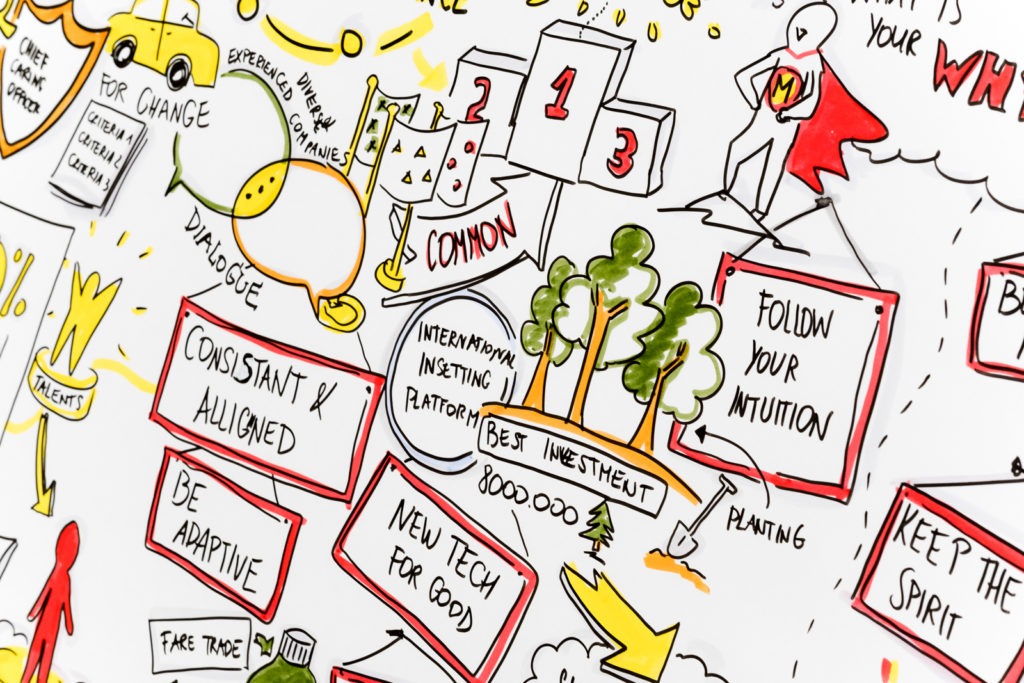 CHIEF
CARING
OFFICER
FOR CHANGE
CRITERIA 1
CRITERIA 2
CRITERIA 3
EXPERIENCED
DIVERSE
COMPANIES
DIALOGUE
COMMON
2
1
3
M
WHAT IS
YOUR
%
TALENTS
CONSISTANT &
ALLIGNED
BE
ADAPTIVE
INTERNATIONAL
INSETTING
PLATFORM
BEST INVESTMENT
8000.000
PLANTING
FOLLOW
YOUR
INTUITION
NEW TECH
FOR GOOD
KEEP THE
SPIRIT
FARE TRADE